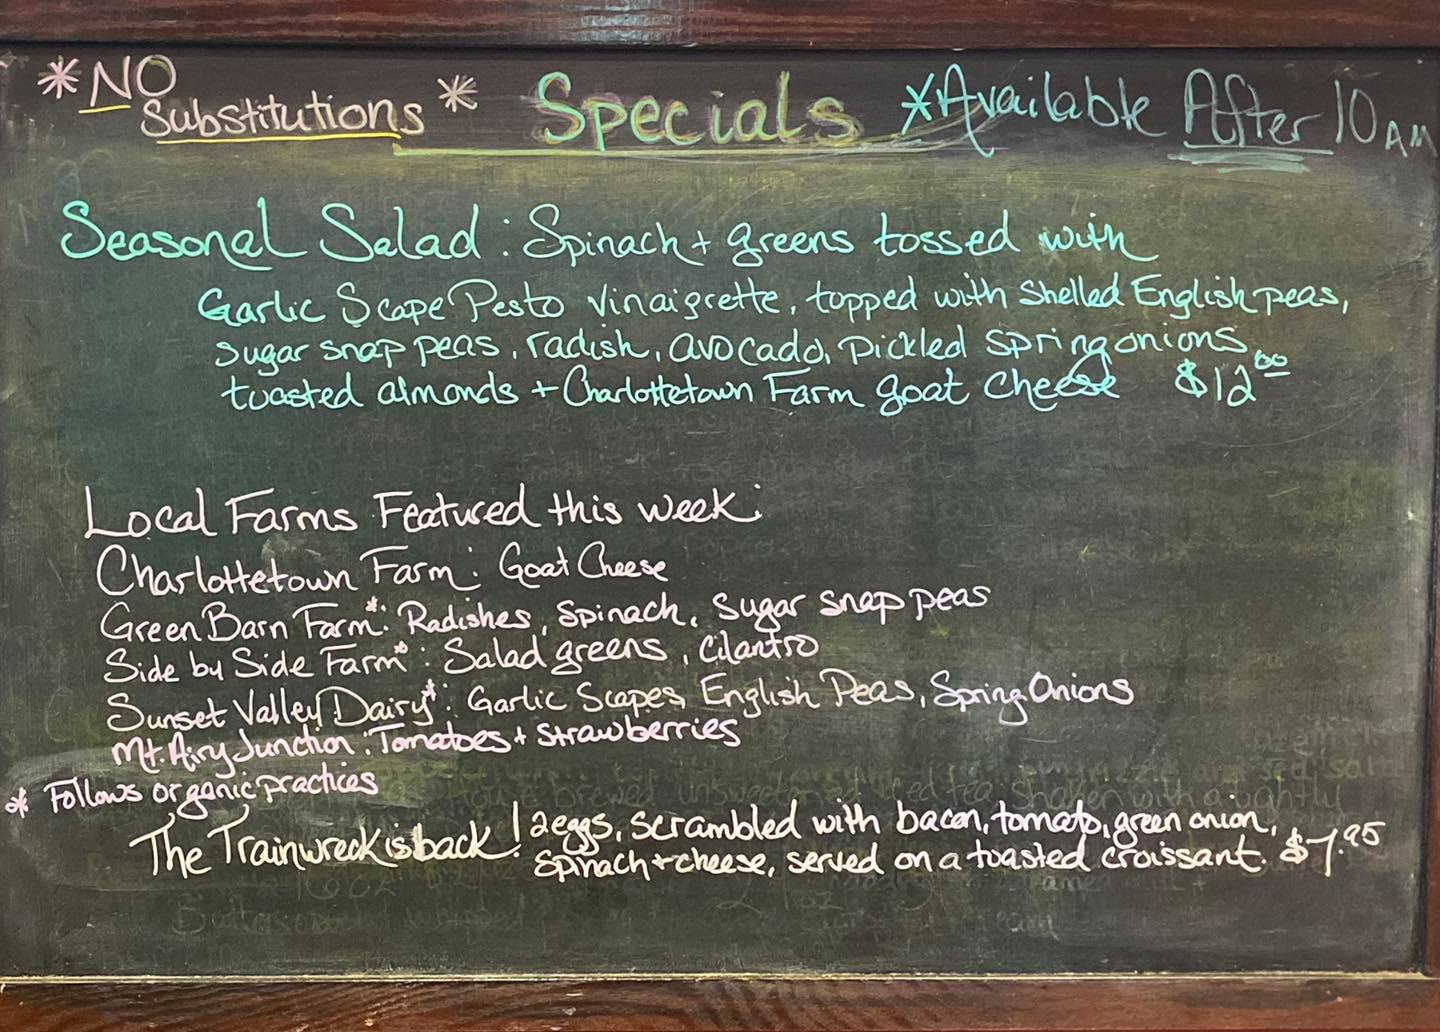 *NO
Substitutions*
Specials
*Available After 10 AM
Seasonal Salad: Spinach + greens tossed with
Garlic Scape Pesto Vinaigrette, topped with Shelled English peas,
sugar snap peas, radish, avocado, pickled spring onions,
toasted almonds + Charlottetown Farm goat cheese $12.00
Local Farms Featured this week:
Charlottetown Farm: Goat Cheese
Green Barn Farm*: Radishes, Spinach, Sugar snap peas
Side by Side Farm*: Salad greens, Cilantro
Sunset Valley Dairy*: Garlic Scapes, English Peas, Spring Onions
Mt. Airy Junction: Tomatoes + Strawberries
* Follows organic practices
The Trainwreck is back! 2 eggs, scrambled with bacon, tomato, green onion,
spinach + cheese, served on a toasted croissant. $7.95